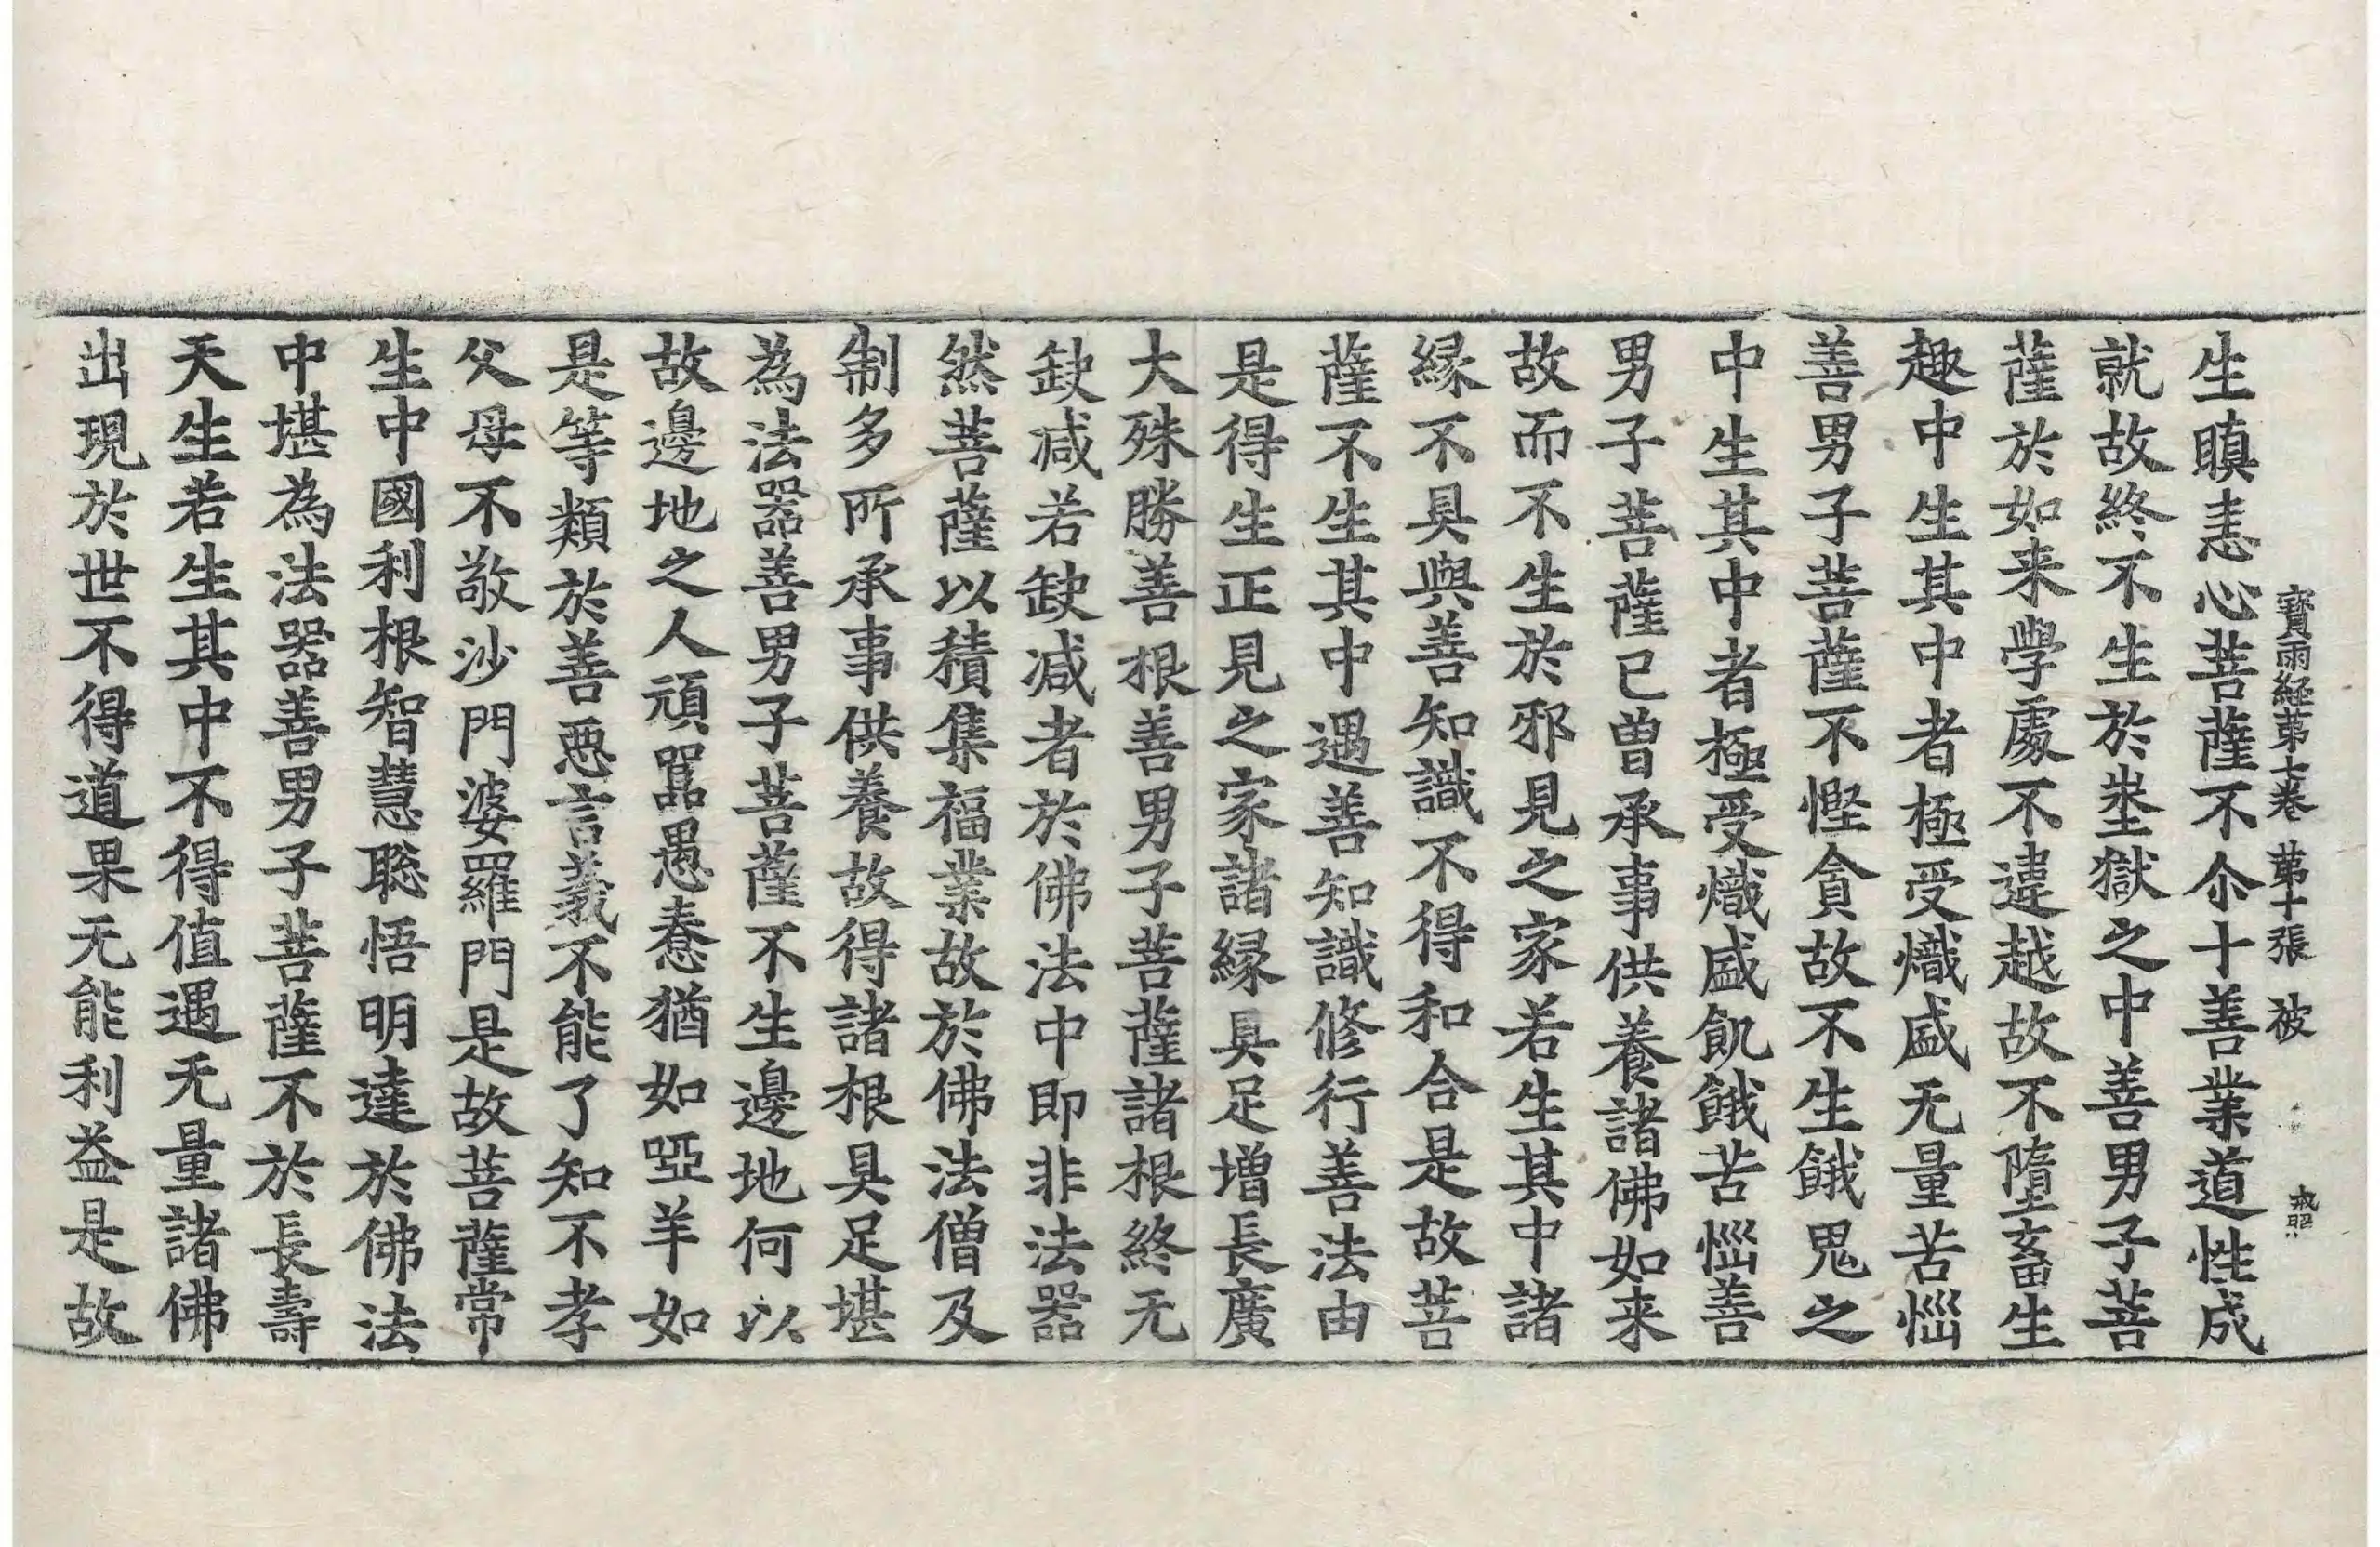 寶雨經第七卷　第十張　被　戒照
生瞋恚心菩薩不尒十善業道性成
就故終不生於埊獄之中善男子菩
薩於如来學處不違越故不墮畜生
趣中生其中者極受熾盛无量苦惱
善男子菩薩不慳貪故不生餓鬼之
中生其中者極受熾盛飢餓苦惱善
男子菩薩已曾承事供養諸佛如来
故而不生於邪見之家若生其中諸
縁不具與善知識不得和合是故菩
薩不生其中遇善知識修行善法由
是得生正見之家諸縁具足增長廣
大殊勝善根善男子菩薩諸根終无
缺减若缺减者於佛法中即非法器
然菩薩以積集福業故於佛法僧及
制多所承事供養故得諸根具足堪
為法器善男子菩薩不生邊地何以
故邊地之人頑嚚愚惷猶如啞羊如
是等類於善惡言義不能了知不孝
父母不敬沙門婆羅門是故菩薩常
生中國利根智慧聡悟明達於佛法
中堪為法器善男子菩薩不於長壽
天生若生其中不得值遇无量諸佛
出現於世不得道果无能利益是故